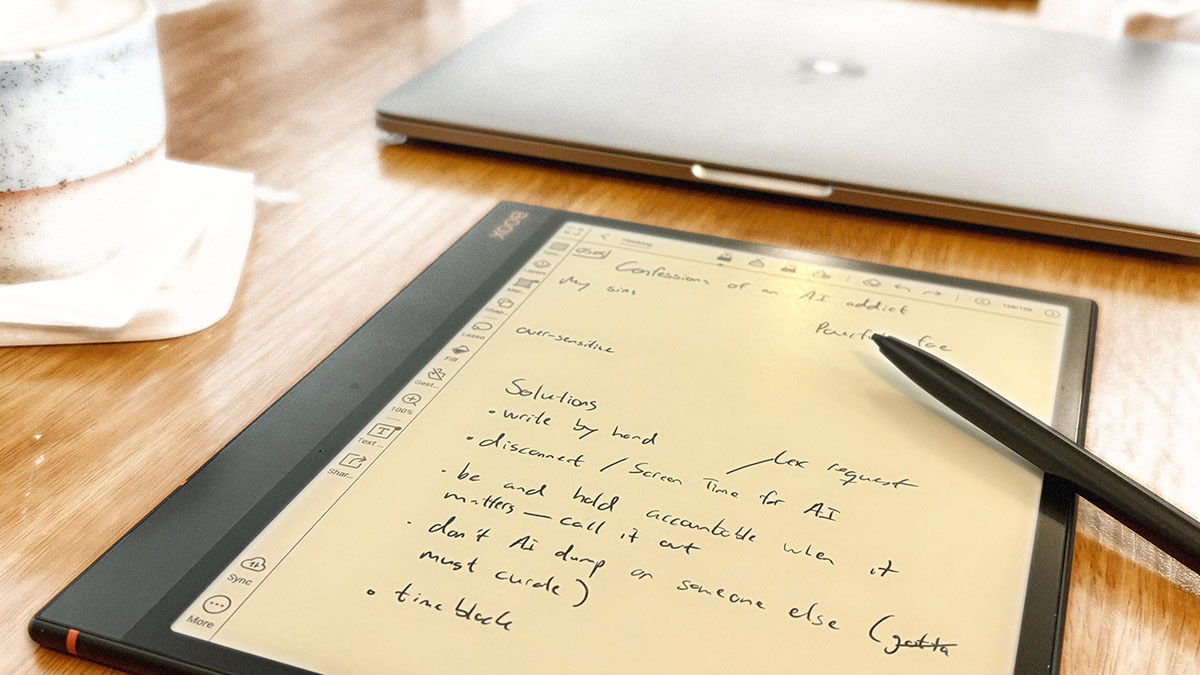 BOOX
Thinking
Confessions of an AI addict
My sins
Powerful foe
over-sensitive
Solutions
• write by hand
• disconnect / Screen Time for AI
/ Lex request
• be and hold accountable when it
matters — call it out
• don't AI dump on someone else (gotta
must curate)
• timeblock
Layers
Shap...
Lasso
Fill
Gest...
100%
Text ...
Shar...
Sync
More